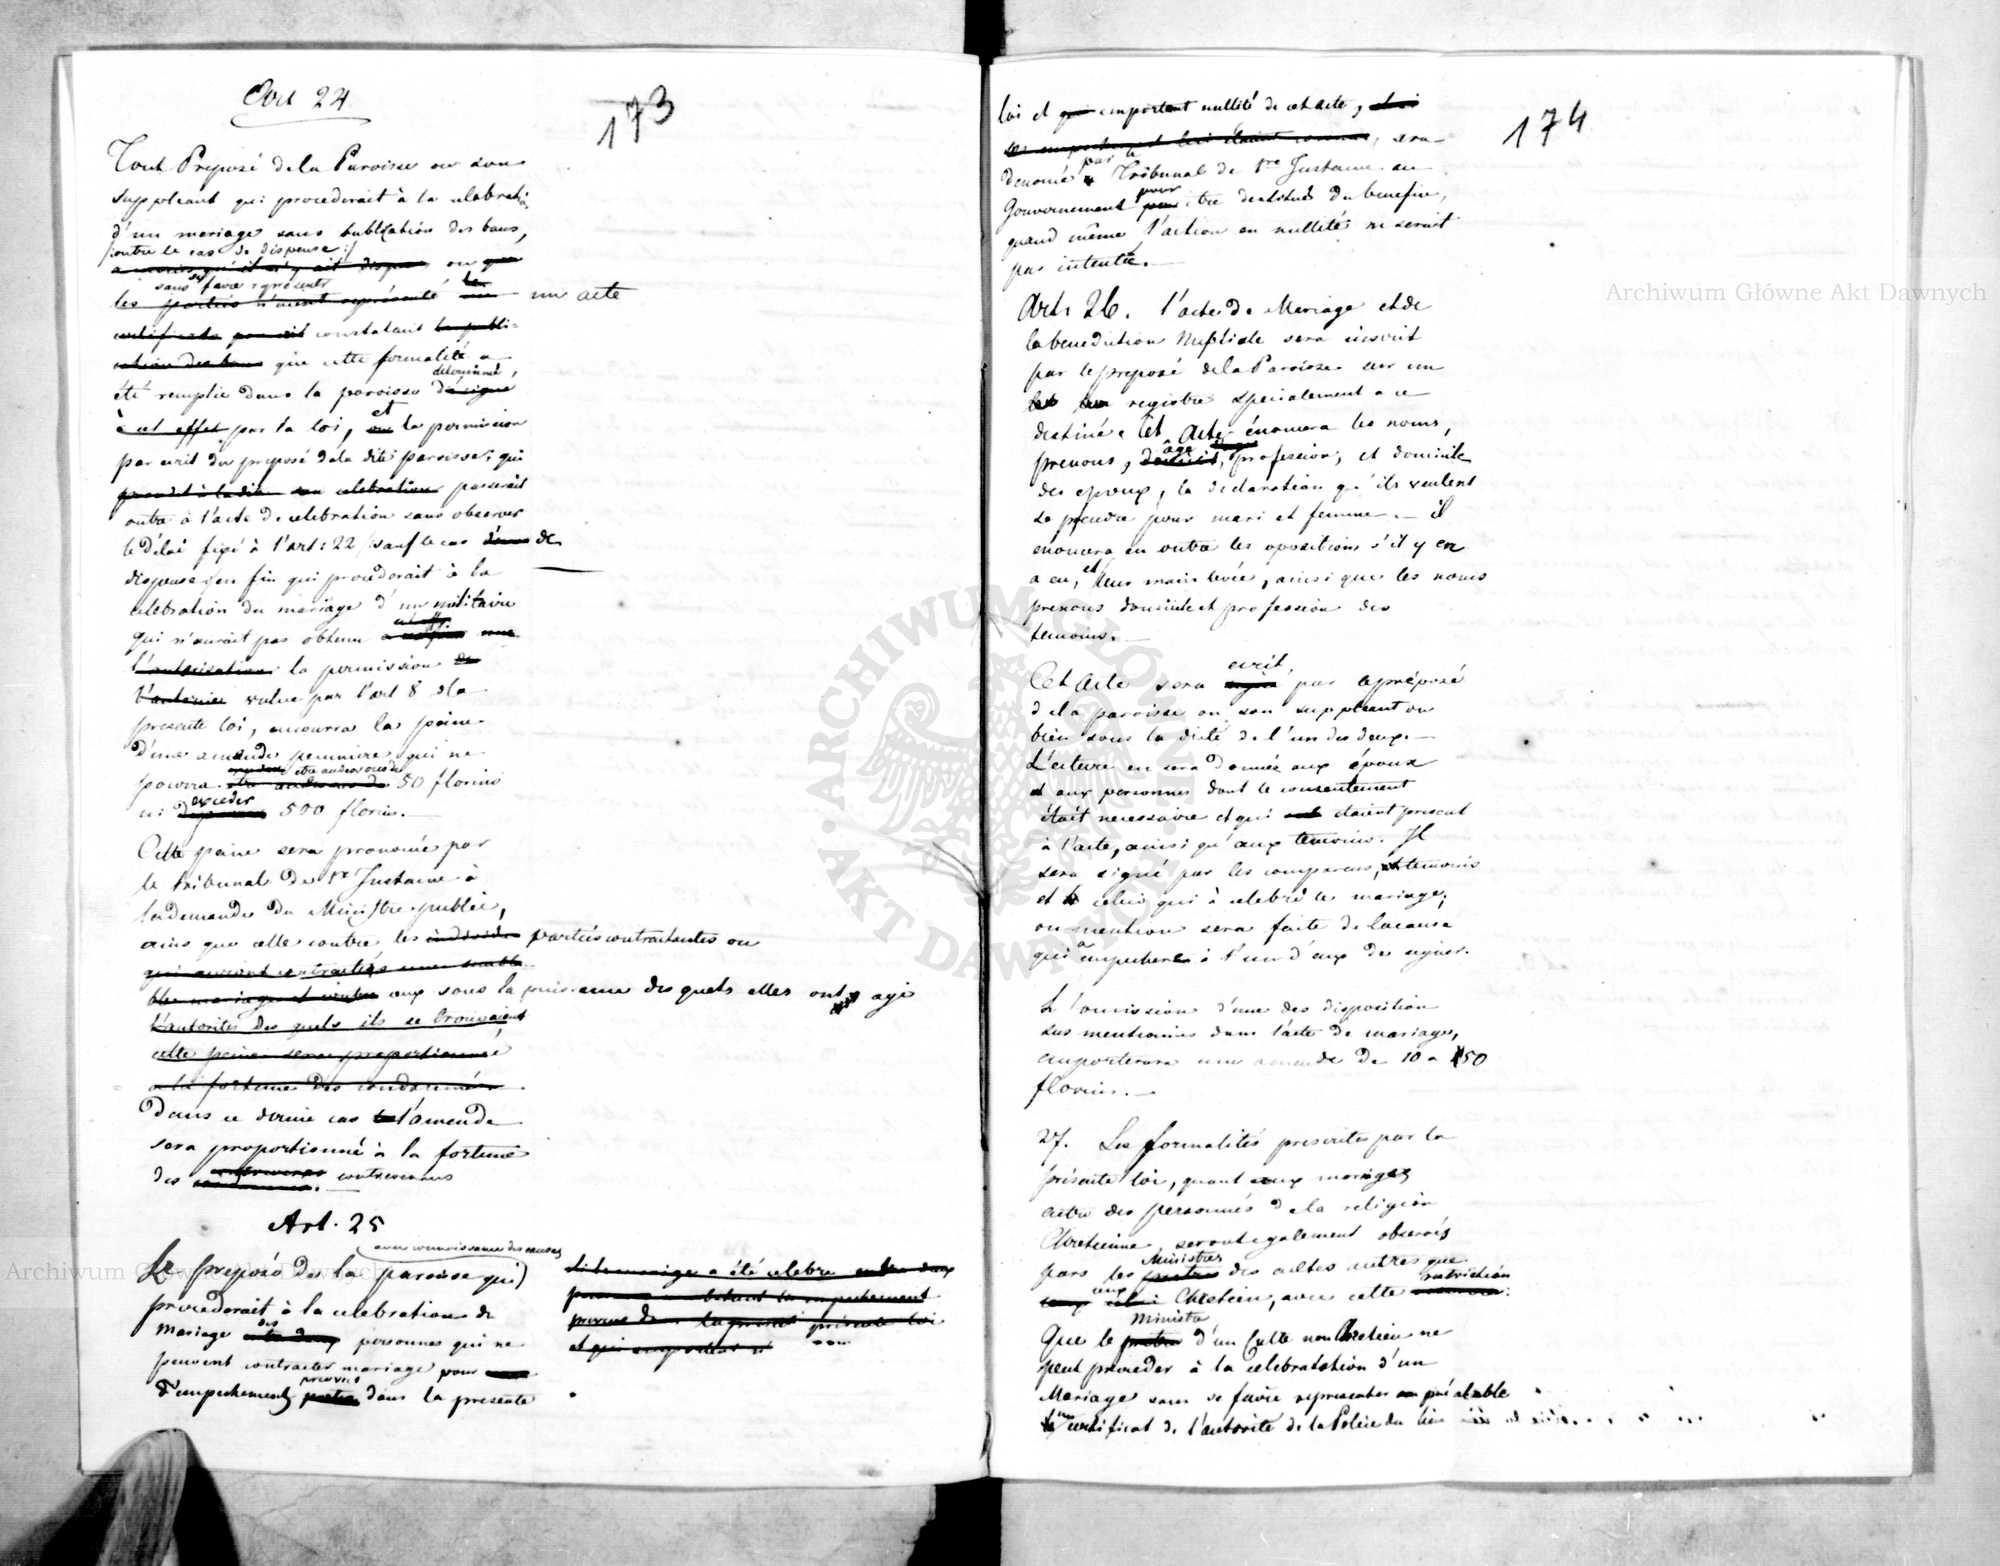 Art 24
173
Tout Preposé de la Paroisse ou son
suppleant qui procederait à la celebration
d'un mariage sans publication des bans,
/:outre le cas de dispense:/
a moins qu'il n'y ait dispense ou que
sans se faire représenter
les parties n'aient représenté le un acte
certificat constatant la publi-
cation des bans que cette formalité a
déterminée,
été remplie dans la paroisse désigné
à cet effet par la loi, et la permission
par ecrit du preposé de la dite paroisse; qui
celebration passerait
outre à l'acte de celebration sans observer
le délai fixé à l'art: 22 /sauf le cas de
dispense; en fin qui procederait à la
celebration du mariage d'un militaire
qui n'aurait pas obtenu
l'autorisation la permission de
voulue par l'art 8 de la
presente loi, encourra la peine
d'une amende pecuniaire qui ne
pourra être au dessous de 50 florins
exceder
ni 500 florins.
Cette peine sera prononcée par
le tribunal de 1re Instance à
la demande du Ministre public,
ainsi que celle contre les parties contractantes ou
qui auront contractés une sembla-
ble mariage et contre ceux sous la puissance des quels elles ont agi
l'autorités des quels ils se trouvaient
cette peine sera proportionnée
a la fortune des condamnés
Dans ce dernier cas l'amende
sera proportionné à la fortune
des contrevenans
Art. 25
avec connoissance des causes
Le preposés des la paroisse qui
procederait à la celebration de
Mariage des personnes qui ne
peuvent contracter mariage pour
prevus
d'empechements dans la presente
Si le mariage a été celebré entre deux
empechement
presente loi
et qui emportent
174
loi et qui emportent nullité de cet acte,
sera
par le
denoncé Tribunal de 1re Instance au
pour
Gouvernement être destitué du benefice,
quand même l'action en nullité ne serait
pas intentée.
Art: 26. l'acte de Mariage et de
la benediction Nuptiale sera inscrit
par le preposé de la Paroisse sur un
registre specialement a ce
destiné. Cet Acte énoncera les noms,
age
prenoms, profession, et domicile
des epoux, la declaration qu'ils veulent
se prendre pour mari et femme. — il
enoncera en outre les oppositions s'il y en
a eu, et leur main levée, ainsi que les noms
prenoms domicile et profession des
temoins.
ecrit
Cet Acte sera par le préposé
de la paroisse ou son suppleant ou
bien sous la dicté de l'un des deux.
Lecture en sera donnée aux époux
et aux personnes dont le consentement
était necessaire et qui etaient present
à l'acte, ainsi qu'aux temoins. Il
sera signé par les comparans, temoins
et celui qui à celebré le mariage;
ou mention sera faite de la cause
qui a empeché à l'un d'eux de signer.
L'omission d'une des disposition
sus mentionnées dans l'acte de mariage,
emporterera une amende de 10 a 50
florins.
27. Les formalités prescrites par la
présente loi, quant aux mariages
entre des personnes de la religion
Chretienne, seront egalement observés
Ministres
pars les pretres des cultes autres que
ceux restriction
Chretien, avec cette
Ministre
Que le pretre d'un Culte non Chretien ne
peut proceder à la celebratotion d'un
Mariage sans se faire representer au préalable
un certificat de l'autorité de la Police du lieu
Archiwum Główne Akt Dawnych
Archiwum Główne Akt Dawnych
ARCHIWUM GŁÓWNE
AKT DAWNYCH